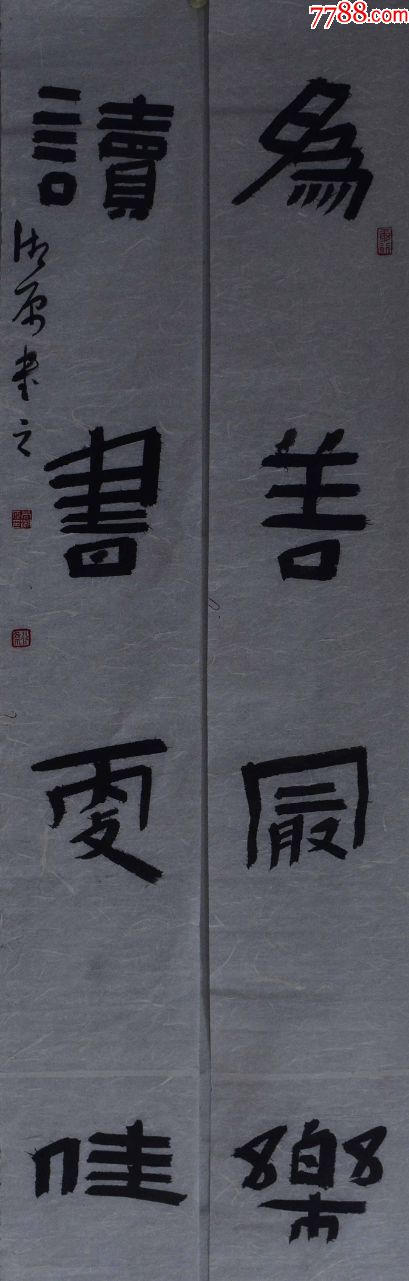 7788.com
為善最樂
讀書更佳
書之